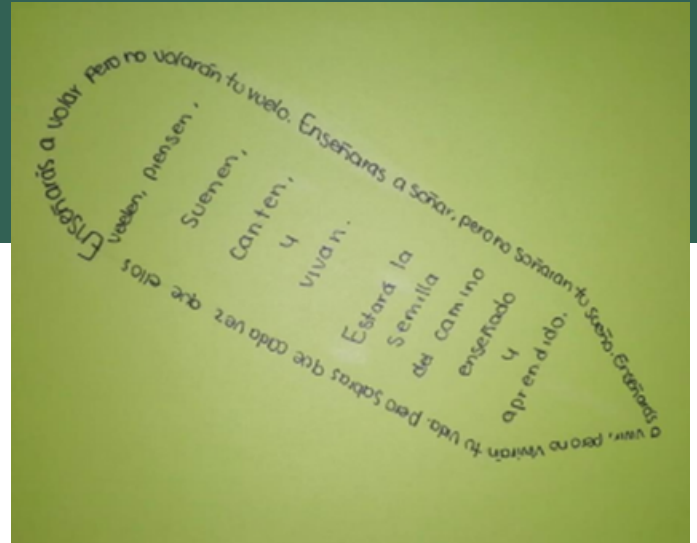 Enseñarás a volar pero no volarán tu vuelo. Enseñaras a soñar, pero no soñaran tu sueño. Enseñarás a vivir, pero no vivirán tu vida. pero sabras que cada vez que ellos
vuelen, piensen,
suenen,
canten,
y
vivan.
Estará la
semilla
del camino
enseñado
y
aprendido.